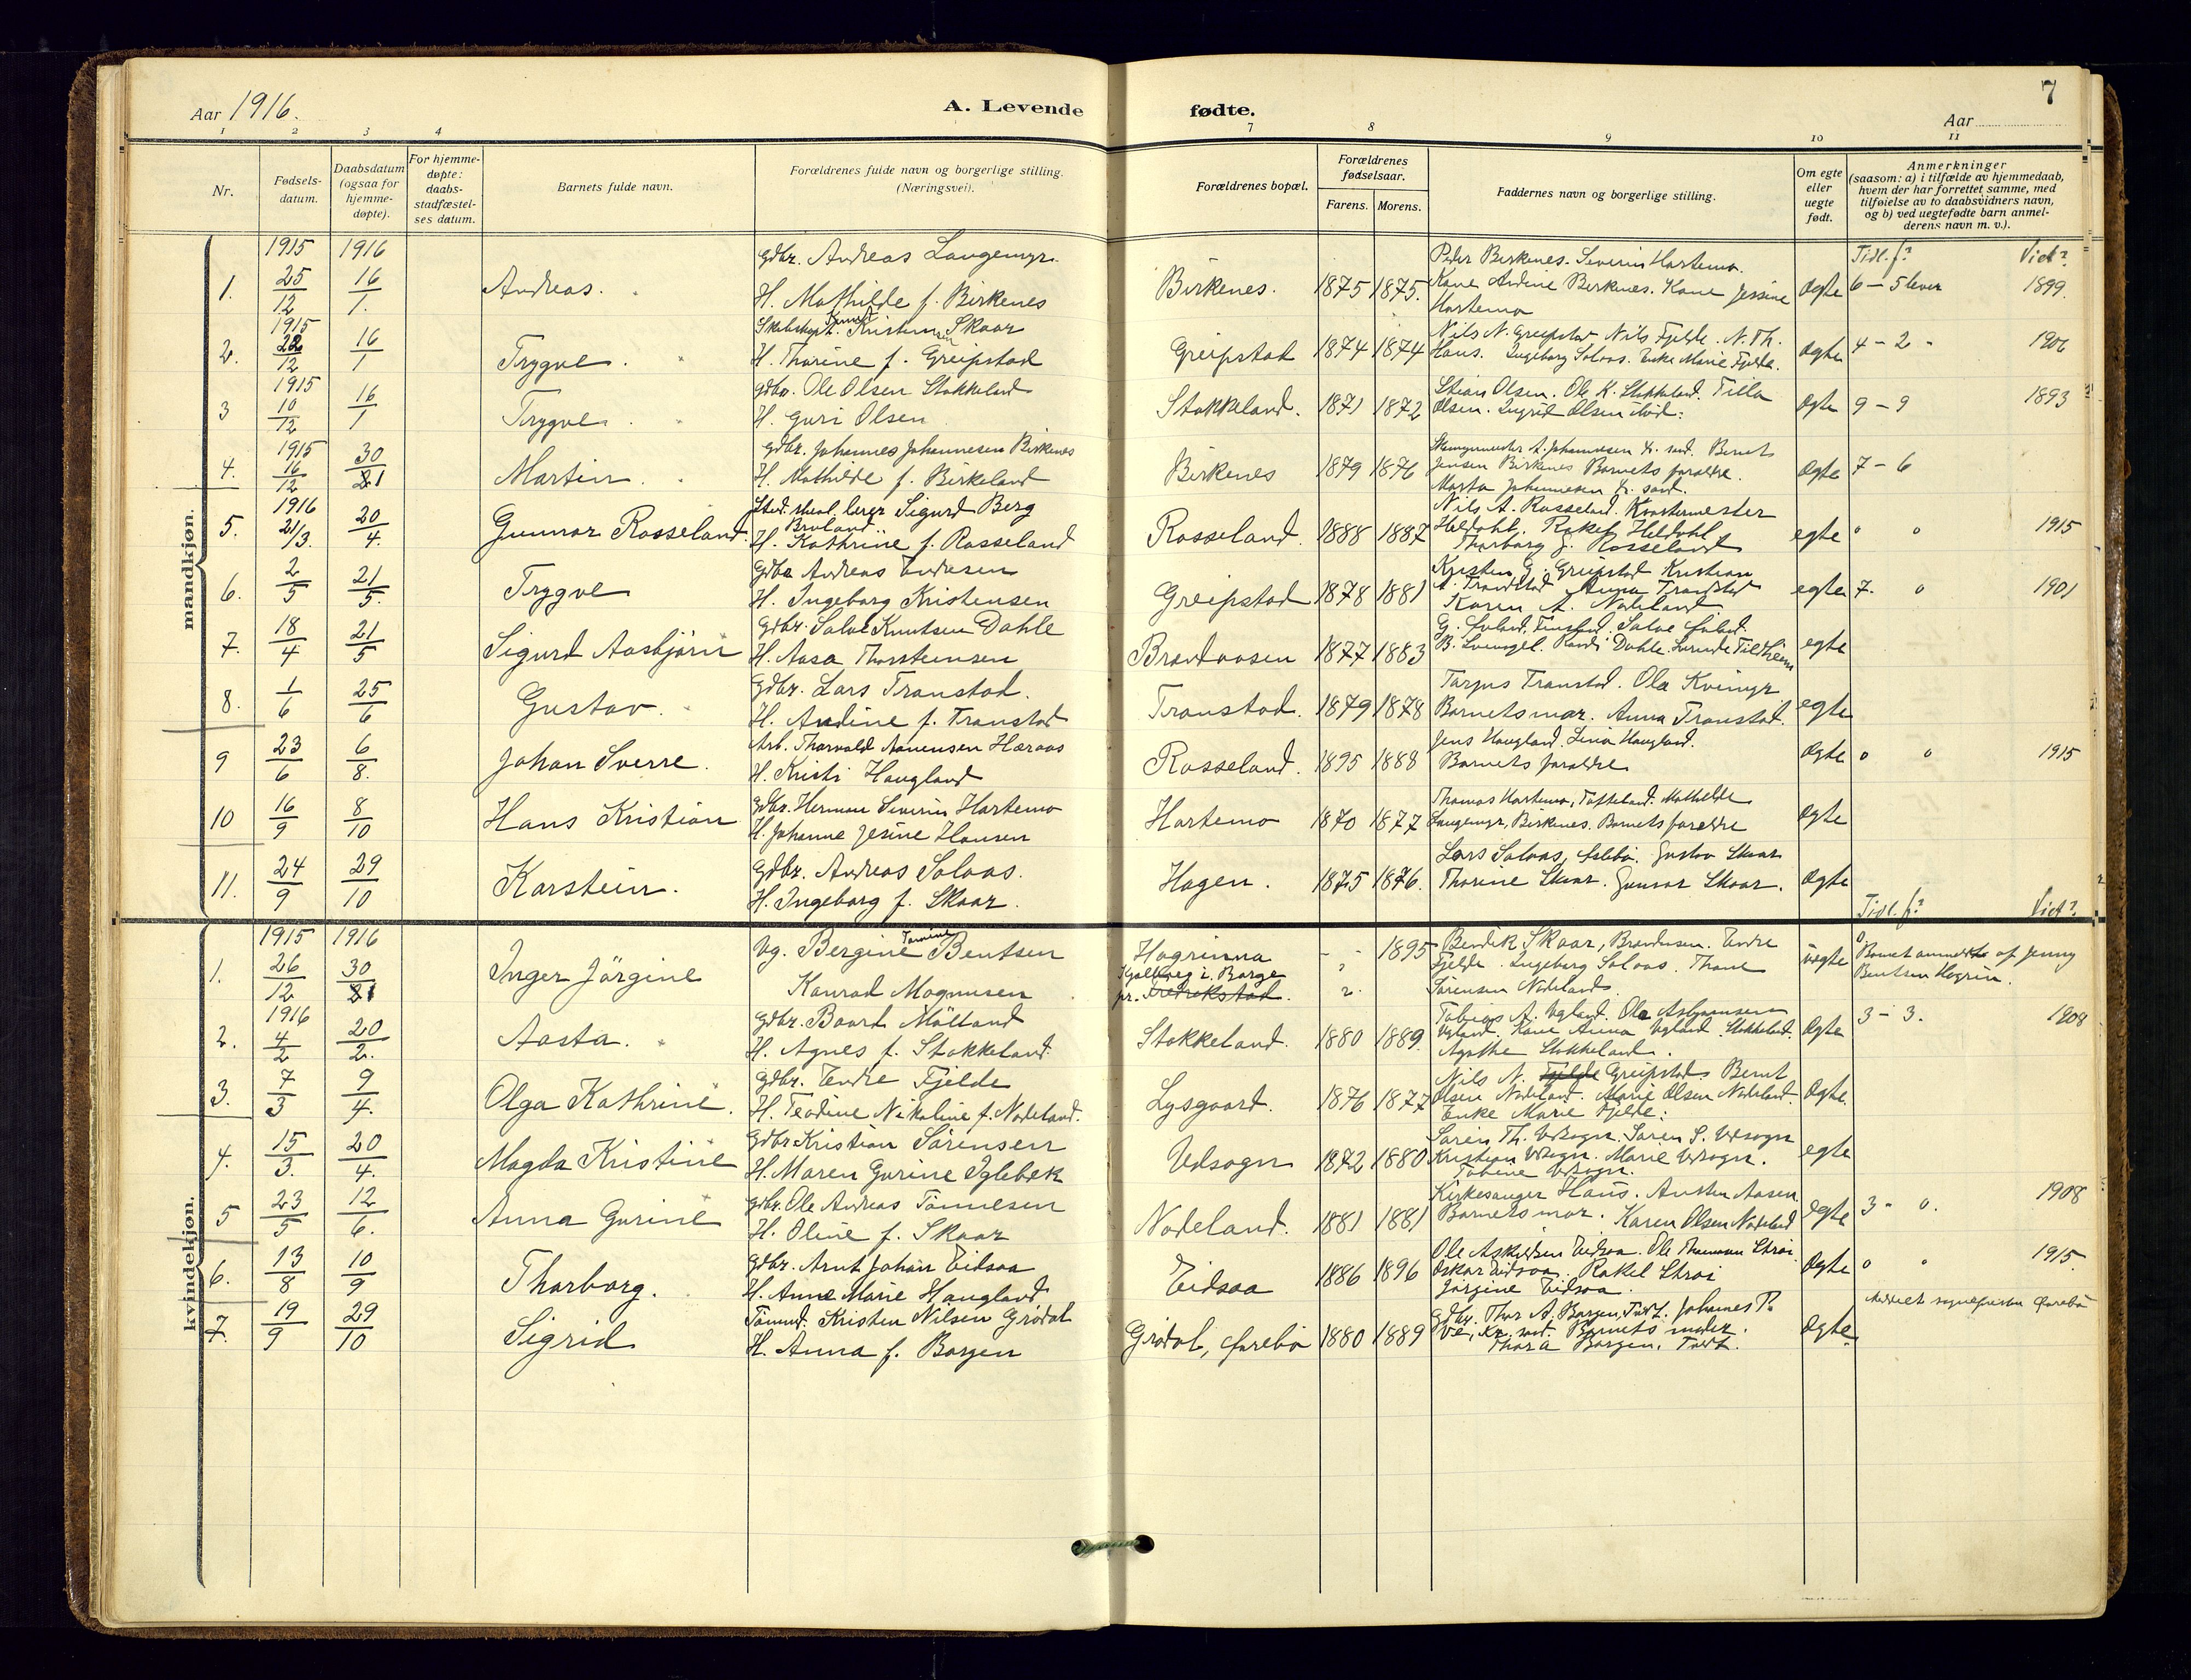 7
Aar 1916.
A. Levende fødte.
Aar
1 2 3 4 7 8 9 10 11
Nr.
Fødsels-
datum.
Daabsdatum
(ogsaa for
hjemme-
døpte).
For hjemme-
døpte:
daabs-
stadfæstel-
ses datum.
Barnets fulde navn.
Forældrenes fulde navn og borgerlige stilling.
(Næringsvei).
Forældrenes bopæl.
Forældrenes
fødselsaar.
Farens. Morens.
Faddernes navn og borgerlige stilling.
Om egte
eller
uegte
født.
Anmerkninger
(saasom: a) i tilfælde av hjemmedaab,
hvem der har forrettet samme, med
tilføielse av to daabsvidners navn,
og b) ved uegtefødte barn anmel-
derens navn m. v.).
mandkjøn.
1915 1916 gdbr. Andreas Langemyr. Peder Birkenes. Severin Hartemo. Tidl. f? Viet?
1. 25/12 16/1. Andreas. H. Mathilde f. Birkenes Birkenes. 1875 1875. Kone Andine Birkenes. Kone Jessine Hartemo Ægte 6 - 5 lever 1899.
1915 Kristen Skaar
2. 22/12 16/1 Trygve. H. Thorine f. Greipstad Greipstad 1874 1874 Nils N. Greipstad Nils Fjelde. N. Th. Haus. Ingeborg Solaas. Enke Marie Fjelde. Ægte 4 - 2 - 1906
1915 gdbr. Ole Olsen Stokkeland
3 10/12 16/1 Trygve. H. Guri Olsen Stokkeland. 1871 1872 Stian Olsen. Ole K. Stokkeland. Tilla Olsen. Ingrid Olsen ibid. Ægte 9 - 9 1893
1915 gdbr. Johannes Johannesen Birkenes
4. 16/12 30/1 Martin. H. Mathilde f. Birkeland Birkenes 1879 1876 A. Johannesen Kr. sand. Bernt Jensen Birkenes Barnets forældre. Marta Johannesen Kr. sand. Ægte 7 - 6
1916 Sigurd Berg Broland
5. 21/3. 20/4. Gunnar Rosseland. H. Kathrine f. Rosseland Rosseland. 1888 1887 Nils A. Rosseland. Heldahl. Rakel Heldahl. Thorborg J. Rosseland egte 0 0 1915
6. 2/5 21/5. Trygve gdbr Andreas Endresen H. Ingeborg Kristensen Greipstad 1878 1881 Kristen G. Greipstad Kristian A. Tranestad Anna Tranestad Karen A. Nodeland egte 7. 0 1901
7. 18/4 21/5 Sigurd Aasbjörn gdbr. Salve Knutsen Dahle H. Aasa Thorsteinsen Brandaasen 1877 1883 egte
8. 1/6 25/6 Gustav. gdbr. Lars Tranestad. H. Andine f. Tranestad Tranestad. 1879 1878 Tarjus Tranestad. Ola Kvimyr Barnets mor. Anna Tranestad. egte
9 23/6 6/8. Johan Sverre. Arb. Thorvald Aanensen Hæraas H. Kristi Haugland Rosseland. 1895 1888 Jens Haugland. Lina Haugland. Barnets forældre Ægte 0 0 1915
10 16/9 8/10 Hans Kristian gdbr. Herman Severin Hartemo H. Johanne Jesine Hansen Hartemo 1870 1877 Thomas Hartemo, Tofteland. Mathilde Langemyr, Birkenes. Barnets forældre Ægte
11. 24/9 29/10 Karstein. gdbr. Andreas Solaas. H. Ingeborg f. Skaar. Hagen. 1875 1876. Lars Solaas. Gustav Skaar Thorine Skaar. Gunnar Skaar. Ægte
Tidl. f? Viet?
kvindekjøn.
1915 1916
1. 26/12 30/1 Inger Jörgine Ug. Bergine Bentsen Konrad Magnusen Hagrinna i Borge pr. Fredrikstad. 1895 Bendik Skaar, Brandaasen. Endre Fjelde. Ingeborg Solaas. Thone Sørensen Nodeland. uegte Barnet anmeldt af Jenny Bentsen Hagrin.
1916
2. 4/2 20/2. Aasta. gdbr. Baard Mölland H. Agnes f. Stokkeland. Stokkeland. 1880 1889. Tobias A. Vgland. Ole Asbjørnsen Vgland. Kone Anna Vgland. Stokkeland. Agathe Stokkeland. Ægte 3 - 3. 1908
3. 7/3 9/4. Olga Kathrine. gdbr. Endre Fjelde H. Teodine Nikoline f. Nodeland. Lysgaard. 1876 1877 Nils N. Fjelde Greipstad. Bernt Olsen Nodeland. Marie Olsen Nodeland. Enke Marie Fjelde. Ægte.
4. 15/3. 20/4. Magda Kristine gdbr Kristian Sörensen H. Maren Gurine Iglebæk Udsogn 1872 1880 Søren Th. Udsogn. Søren S. Udsogn Kristian Udsogn. Marie Udsogn. Tobine Udsogn. egte
5 23/5 12/6. Anna Gurine gdbr. Ole Andreas Tønnesen H. Oline f. Skaar Nodeland. 1881 1881 Kirkesanger Haus. Austen Aasen. Barnets mor. Karen Olsen Nodeland egte 3 - 0. 1908
6. 13/8 10/9 Thorborg. gdbr. Arnt Johan Eidsaa H. Anne Marie Haugland. Eidsaa 1886 1896 Ole Askildsen Eidsaa. Ole Strai Oskar Eidsaa. Rakel Strai Jörgine Eidsaa. Ægte 0 " 1915.
7. 19/9 29/10 Sigrid Tömmd. Kristen Nilsen Grödal H. Anna f. Borgen Grödal, Øvrebö 1880 1889 Gdbr. Thor A. Borgen, Johannes P. Ve, Kr. sand. Barnets moder. Thora Borgen. Ægte. Øvrebö